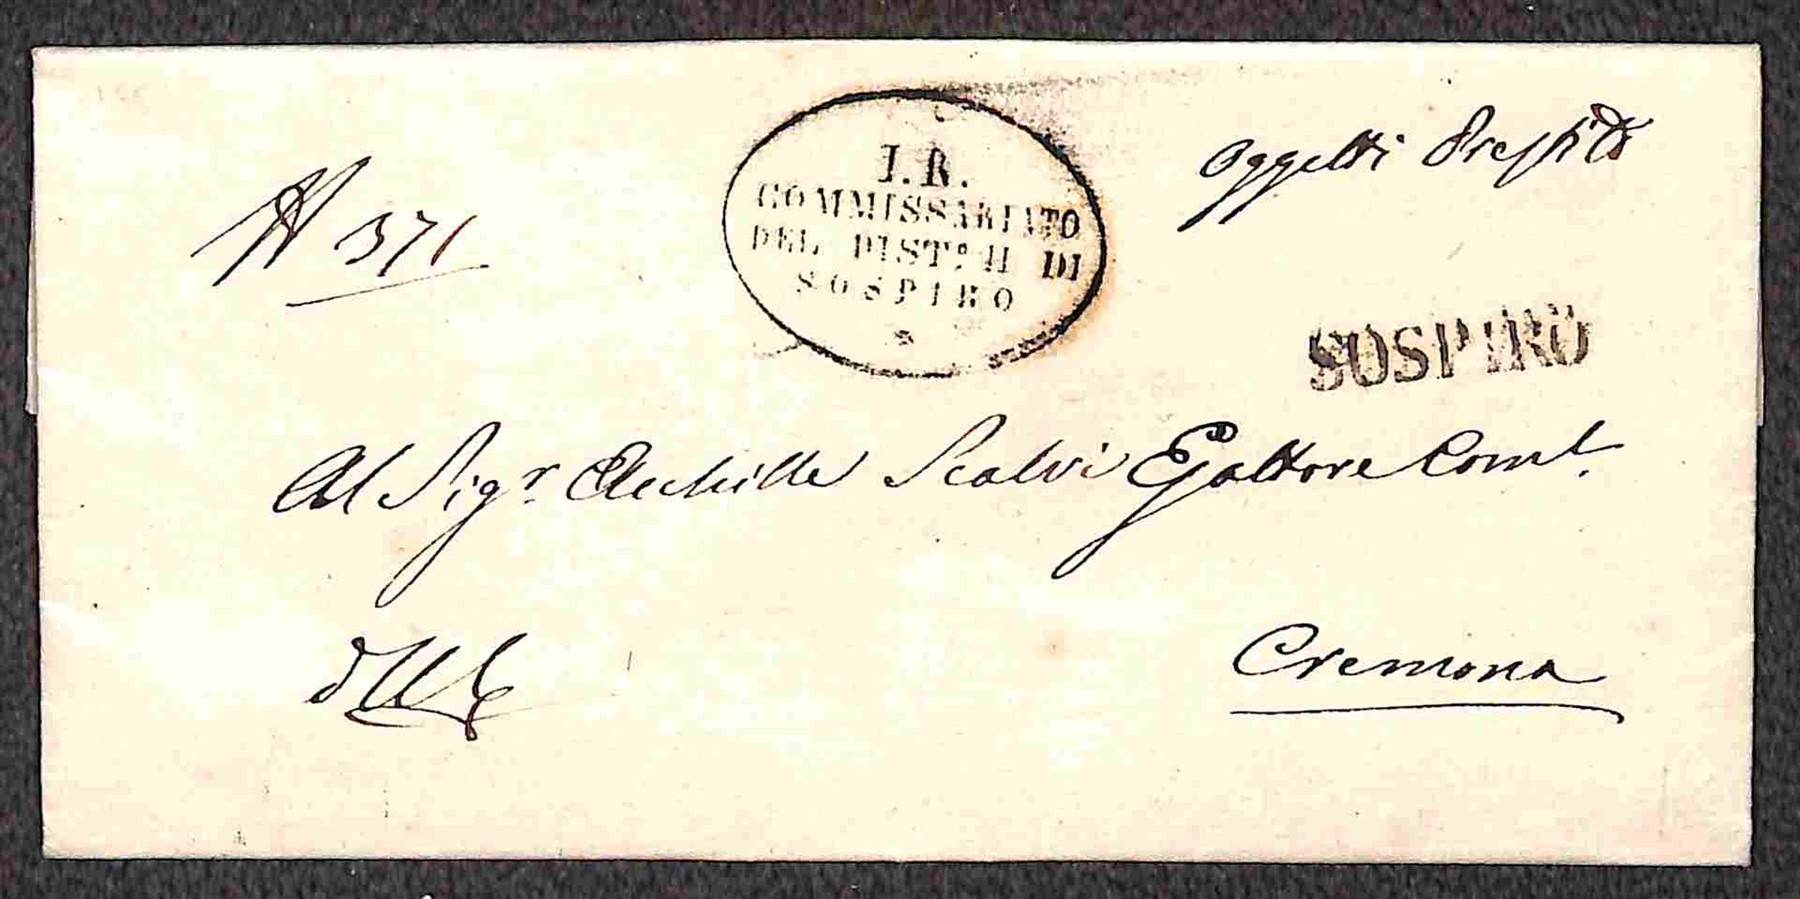 I. R.
COMMISSARIATO
DEL DIST.º II DI
SOSPIRO
Oggetti
N 371
SOSPIRO
Al Sigr. Achille Scalvi Esattore Coml.
Cremona